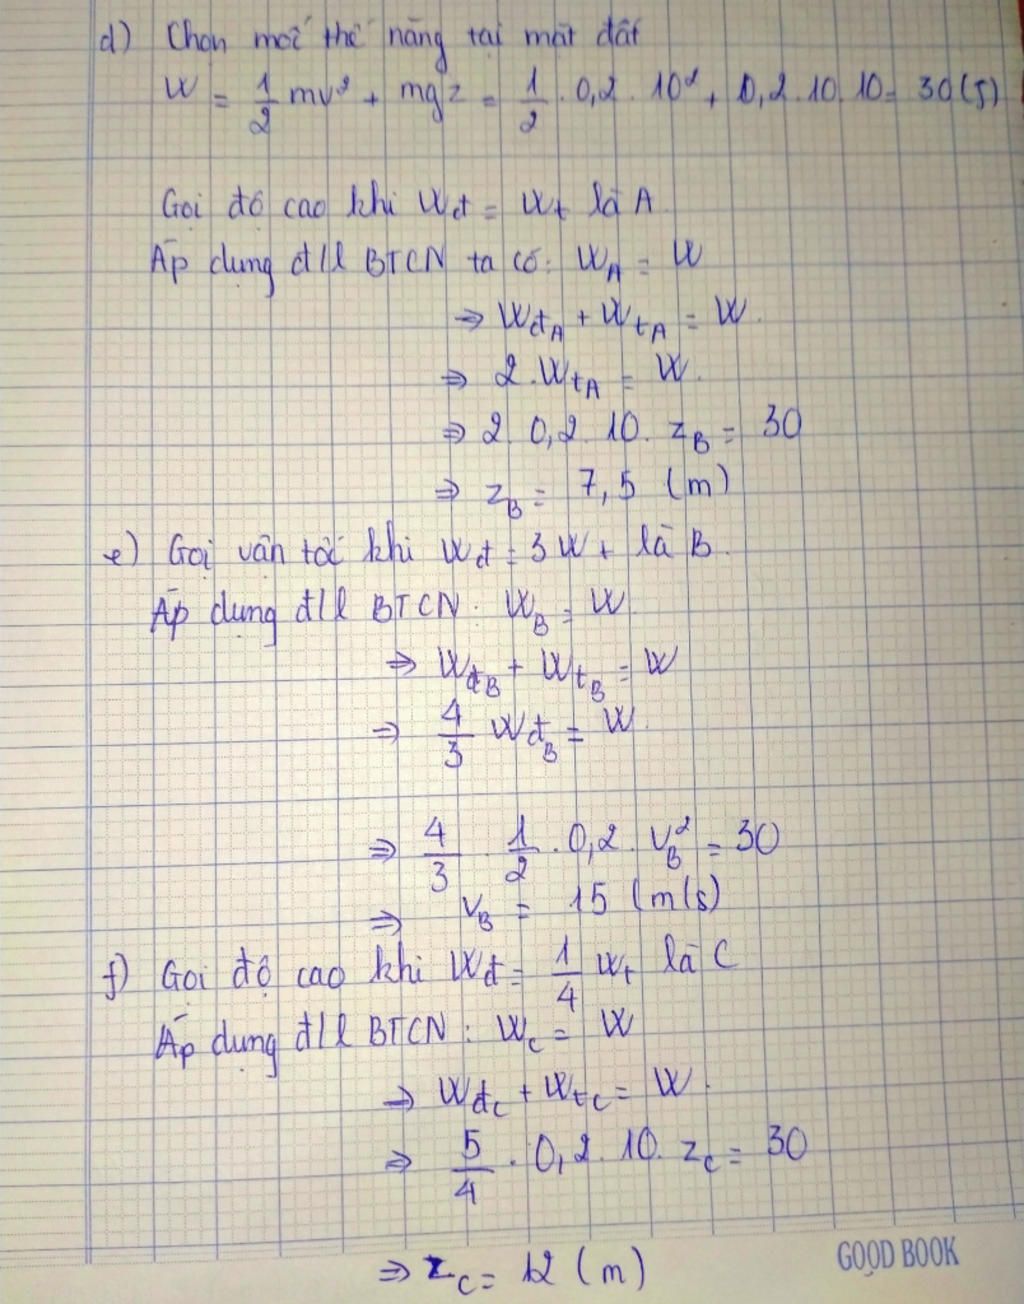 d) Chọn mốc thế năng tại mặt đất
W = 1/2 mv² + mgz = 1/2 . 0,2 . 10² + 0,2 . 10 . 10 = 30 (J)
Gọi độ cao khi Wđ = Wt là A
Áp dụng đ/l BTCN ta có: W_A = W
⇒ Wđ_A + Wt_A = W.
⇒ 2 . Wt_A = W.
⇒ 2 . 0,2 . 10 . z_B = 30
⇒ z_B = 7,5 (m)
e) Gọi vận tốc khi Wđ = 3Wt là B.
Áp dụng đ/l BTCN : W_B = W
⇒ Wđ_B + Wt_B = W
⇒ 4/3 Wđ_B = W.
⇒ 4/3 . 1/2 . 0,2 . v_B² = 30
⇒ v_B = 15 (m/s)
f) Gọi độ cao khi Wđ = 1/4 Wt là C
Áp dụng đ/l BTCN : W_C = W
⇒ Wđ_C + Wt_C = W.
⇒ 5/4 . 0,2 . 10 . z_C = 30
⇒ z_C = 12 (m)
GOOD BOOK